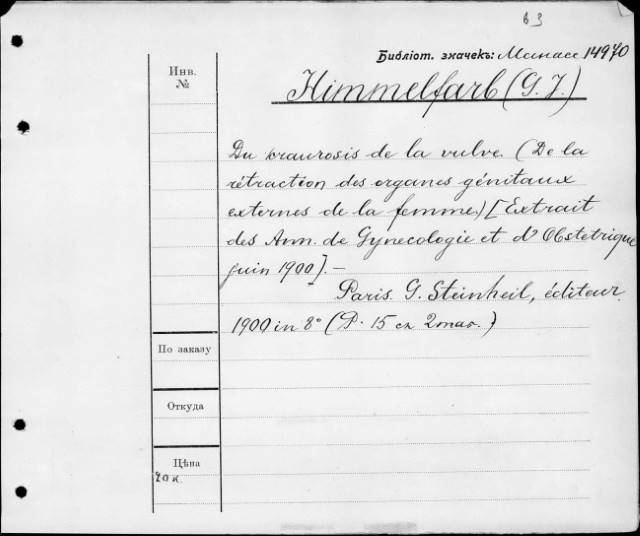 63
Библіот. значекъ: Манас 14970
Инв.
№
Himmelfarb (G. J.)
Du kraurosis de la vulve. (De la
rétraction des organes génitaux
externes de la femme) [Extrait
des Ann. de Gynecologie et d'Obstetrique
juin 1900]. —
Paris. G. Steinheil, éditeur.
1900 in 8° (P. 15 съ 2 таб.)
По заказу
Откуда
Цѣна
20 к